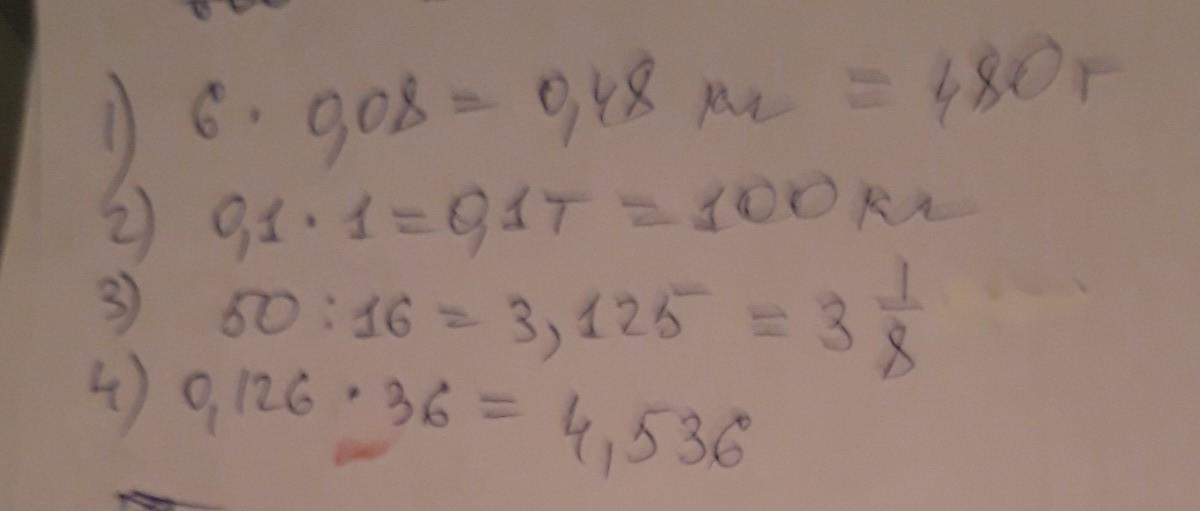 1) 6 · 0,08 = 0,48 кг = 480 г
2) 0,1 · 1 = 0,1 т = 100 кг
3) 50 : 16 = 3,125 = 3 1/8
4) 0,126 · 36 = 4,536